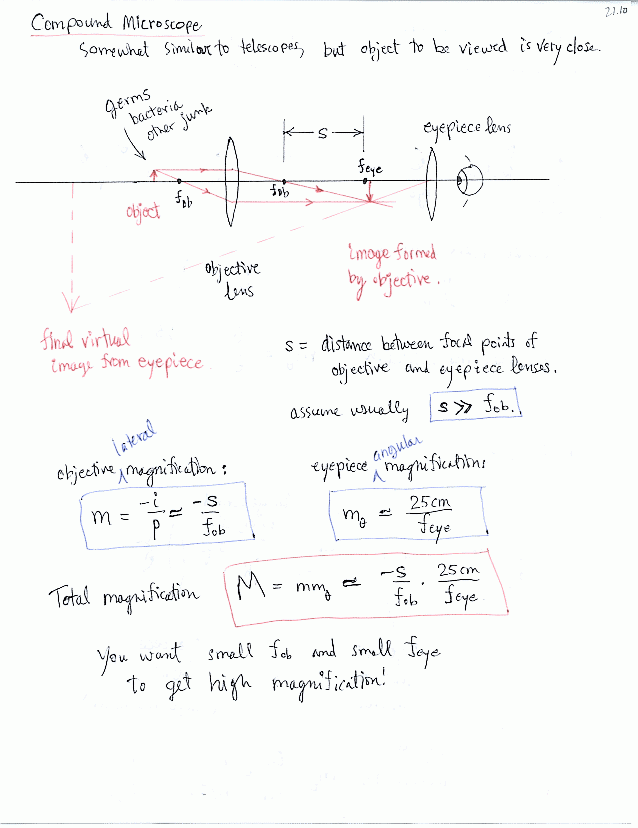 22.10
Compound Microscope
Somewhat similar to telescopes, but object to be viewed is very close.
germs
bacteria
other junk
S
eyepiece lens
feye
fob
fob
object
objective
lens
image formed
by objective.
final virtual
image from eyepiece
S = distance between focal points of
objective and eyepiece lenses.
assume usually S >> fob.
lateral
objective ^ magnification:
angular
eyepiece ^ magnification:
m = -i/p ≃ -S/fob
mθ ≃ 25cm/feye
Total magnification M = mmθ ≃ -S/fob · 25cm/feye
You want small fob and small feye
to get high magnification!